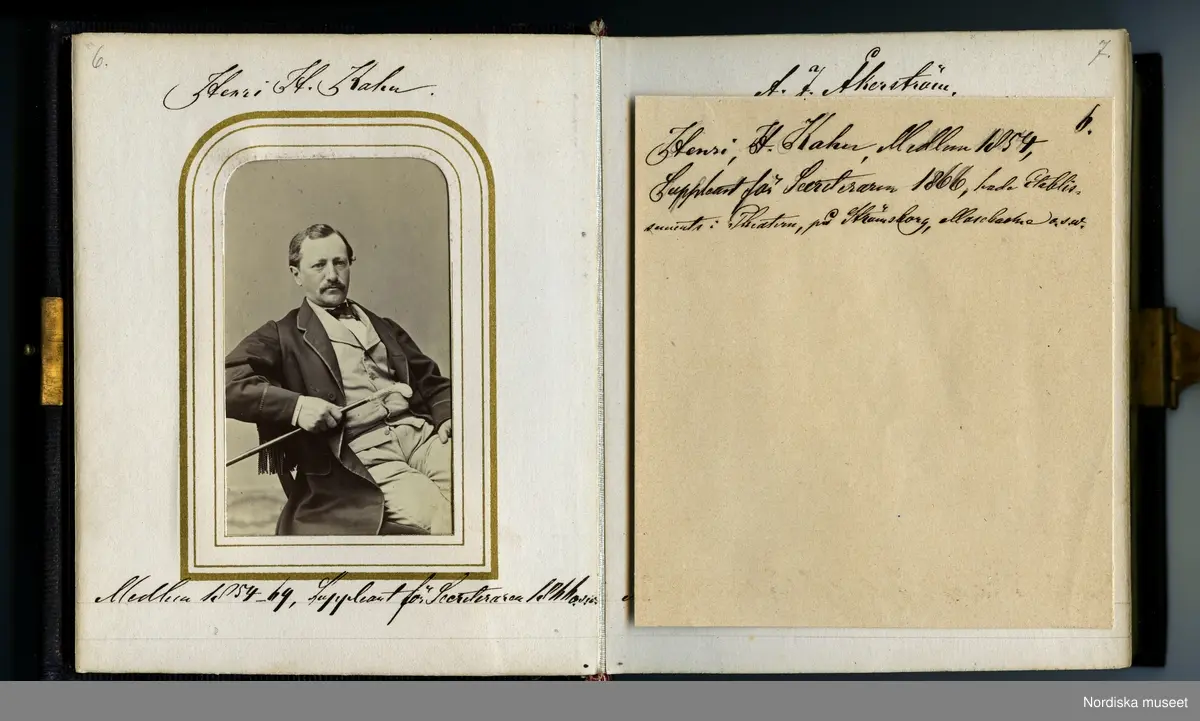 6.
Henri H. Kahn.
Medlem 1854-69, Suppleant för Secreteraren 1866 o.s.v.
7.
A. F. Åkerström.
6.
Henri, H. Kahn, Medlem 1854,
Suppleant för Secreteraren 1866, hade etablis-
sements i Theatern, på Strömsborg, Mosebacke o.s.v.
Nordiska museet